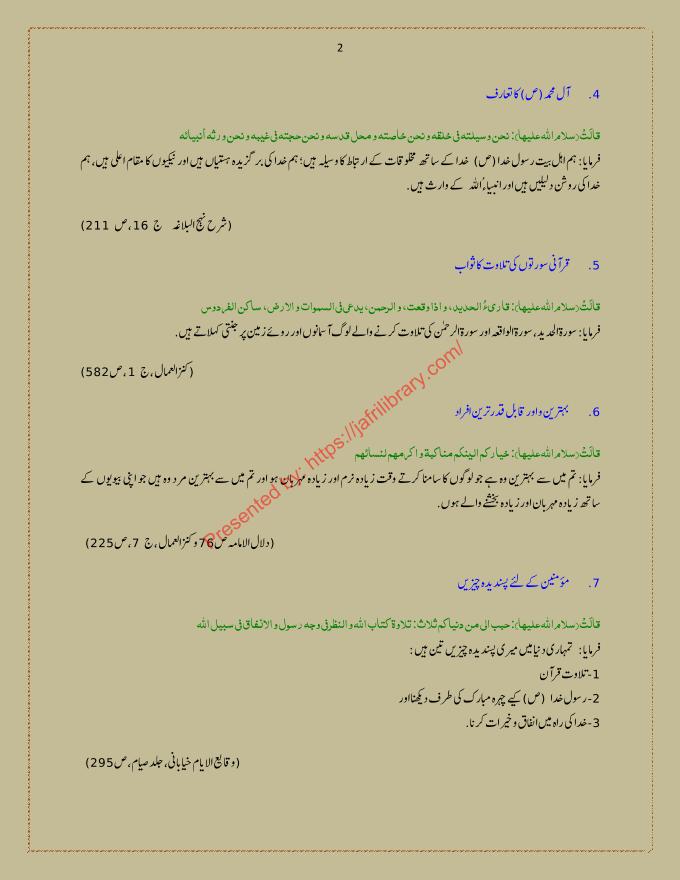 2
4. آل محمد (ص) کا تعارف
قالَتْ(سلام الله علیها): نحن وسیلته فی خلقه و نحن خاصته و محل قدسه و نحن حجته فی غیبه و نحن ورثه أنبیائه
فرمایا: ہم اہل بیت رسول خدا (ص) خدا کے ساتھ مخلوقات کے ارتباط کا وسیلہ ہیں؛ ہم خدا کی برگزیدہ ہستیاں ہیں اور نیکیوں کا مقام اعلی ہیں، ہم
خدا کی روشن دلیلیں ہیں اور انبیاء اللہ کے وارث ہیں.
(شرح نہج البلاغہ ج 16، ص 211)
5. قرآنی سورتوں کی تلاوت کا ثواب
قالَتْ(سلام الله علیها): قاریءُ الحدید، و اذا وقعت، و الرحمن، یدعی فی السموات و الارض، ساکن الفردوس
فرمایا: سورۃالحدید، سورۃالواقعہ اور سورۃالرحمٰن کی تلاوت کرنے والے لوگ آسمانوں اور روئے زمین پر جنتی کہلاتے ہیں.
(کنزالعمال، ج 1، ص582)
6. بہترین و اور قابل قدر ترین افراد
قالَتْ(سلام الله علیها): خیارکم الینکم مناکبة و اکرمهم لنسائهم
فرمایا: تم میں سے بہترین وہ ہے جو لوگوں کا سامنا کرتے وقت زیادہ نرم اور زیادہ مہربان ہو اور تم میں سے بہترین مرد وہ ہیں جو اپنی بیویوں کے
ساتھ زیادہ مہربان اور زیادہ بخشنے والے ہوں.
(دلال الامامہ ص76 و کنزالعمال، ج 7، ص225)
7. مؤمنین کے لئے پسندیدہ چیزیں
قالَتْ(سلام الله علیها): حبب الی من دنیاکم ثلاث: تلاوة کتاب الله و النظر فی وجه رسول و الانفاق فی سبیل الله
فرمایا: تمہاری دنیا میں میری پسندیدہ چیزیں تین ہیں:
1-تلاوت قرآن
2-رسول خدا (ص) کیے چہرہ مبارک کی طرف دیکھنا اور
3-خدا کی راہ میں انفاق و خیرات کرنا.
(وقایع الایام خیابانی، جلد صیام، ص295)
Presented by: https://jafrilibrary.com/